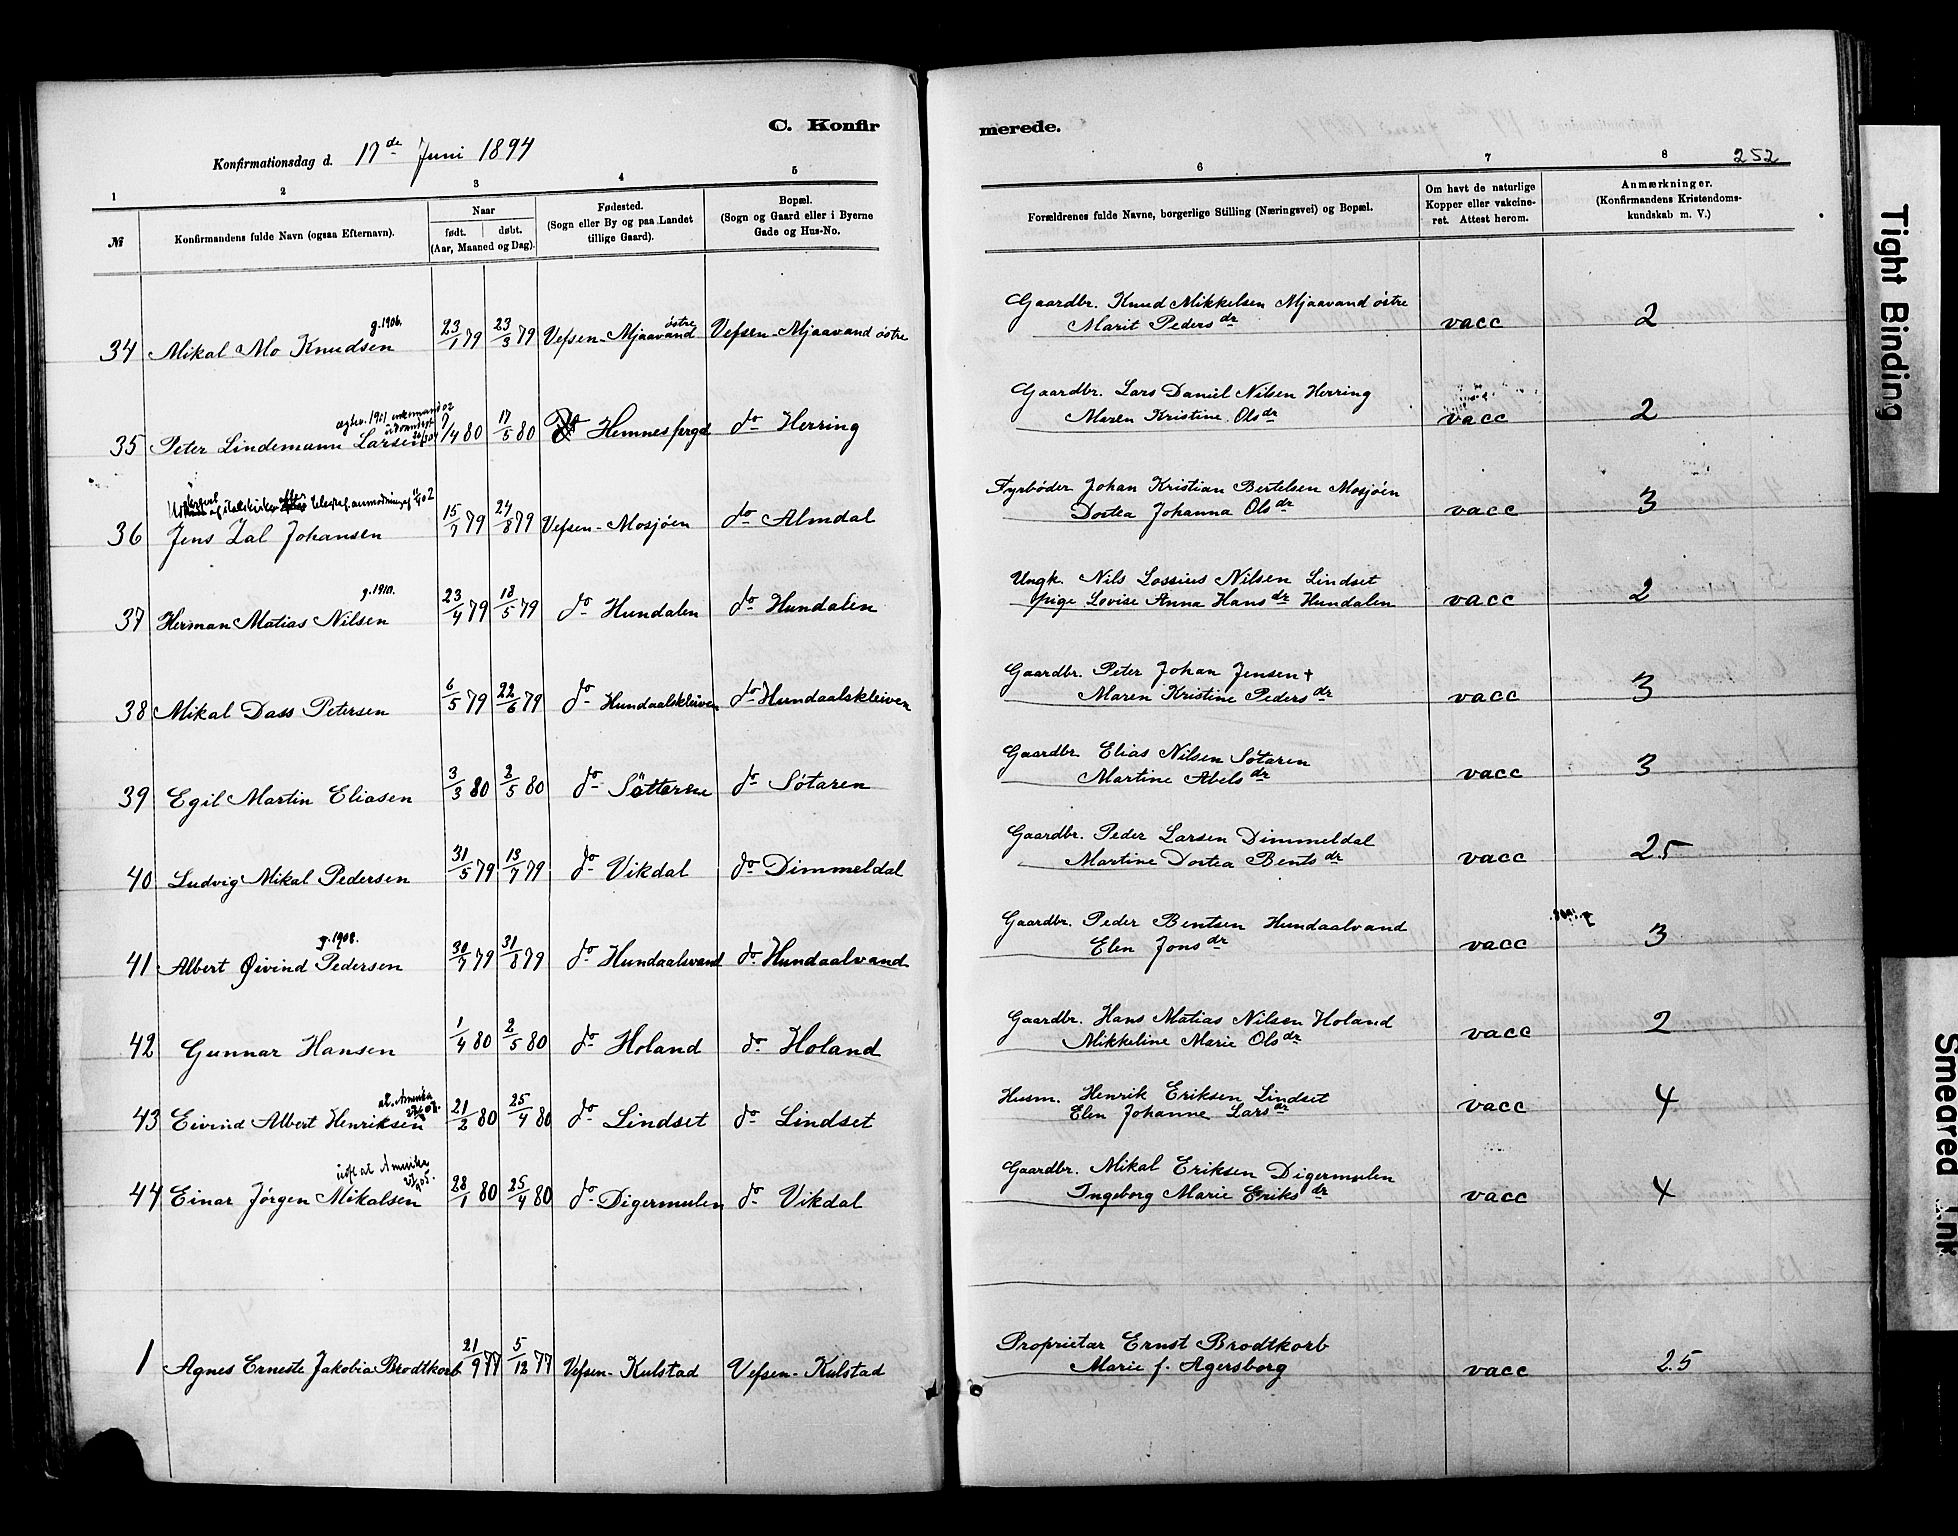 C. Konfir merede.
Konfirmationsdag d. 17de Juni 1894
252
1 2 3 4 5 6 7 8
№
Konfirmandens fulde Navn (ogsaa Efternavn).
Naar
født. døbt.
(Aar, Maaned og Dag).
Fødested.
(Sogn eller By og paa Landet
tillige Gaard).
Bopæl.
(Sogn og Gaard eller i Byerne
Gade og Hus-No.
Forældrenes fulde Navne, borgerlige Stilling (Næringsvei) og Bopæl.
Om havt de naturlige
Kopper eller vakcine-
ret. Attest herom.
Anmærkninger.
(Konfirmandens Kristendoms-
kundskab m. V.)
g. 1906.
34 Mikal Mo Knudsen 23/1 79 23/3 79 Vefsen-Mjaavand østre Vefsen-Mjaavand østre Gaardbr. Knud Mikkelsen Mjaavand østre vacc 2
Marit Pedersdr
35 Peter Lindemann Larsen 7/4 80 17/5 80 Hemnes prgd do Herring Gaardbr. Lars Daniel Nilsen Herring vacc 2
Maren Kristine Olsdr
36 Jens Zal Johansen 15/7 79 24/8 79 Vefsen-Mosjøen do Almdal Fyrbøder Johan Kristian Bertelsen Mosjøen vacc 3
Dortea Johanna Olsdr
g. 1910.
37 Herman Matias Nilsen 23/4 79 18/5 79 do Hundalen do Hundalen Ungk. Nils Lossius Nilsen Lindset vacc 2
pige Lovise Anna Hansdr Hundalen
38 Mikal Dass Petersen 6/5 79 22/6 79 do Hundaalskleiven do Hundaalskleiven Gaardbr. Peter Johan Jensen + vacc 3
Maren Kristine Pedersdr
39 Egil Martin Eliasen 3/3 80 2/5 80 do Søtterne do Søtaren Gaardbr Elias Nilsen Søtaren vacc 3
Martine Abelsdr
40 Ludvig Mikal Pedersen 31/5 79 13/7 79 do Vikdal do Dimmeldal Gaardbr. Peder Larsen Dimmeldal vacc 2.5
Martine Dortea Bentsdr
g. 1908.
41 Albert Øivind Pedersen 30/7 79 31/8 79 do Hundaalsvand do Hundaalvand Gaardbr. Peder Bentsen Hundaalvand vacc 3
Elen Jonsdr
42 Gunnar Hansen 1/4 80 2/5 80 do Holand do Holand Gaardbr. Hans Matias Nilsen Holand vacc 2
Mikkeline Marie Olsdr
43 Eivind Albert Henriksen 21/2 80 25/4 80 do Lindset do Lindset Husm. Henrik Eriksen Lindset vacc 4
Elen Johanne Larsdr
44 Einar Jørgen Mikalsen 28/1 80 25/4 80 do Digermulen do Vikdal Gaardbr. Mikal Eriksen Digermulen vacc 4
Ingeborg Marie Eriksdr
1 Agnes Erneste Jakobia Brodtkorb 21/9 77 5/12 77 Vefsen-Kulstad Vefsen-Kulstad Proprietær Ernst Brodtkorb vacc 2.5
Marie f. Agersborg
Tight Binding
Smeared Ink